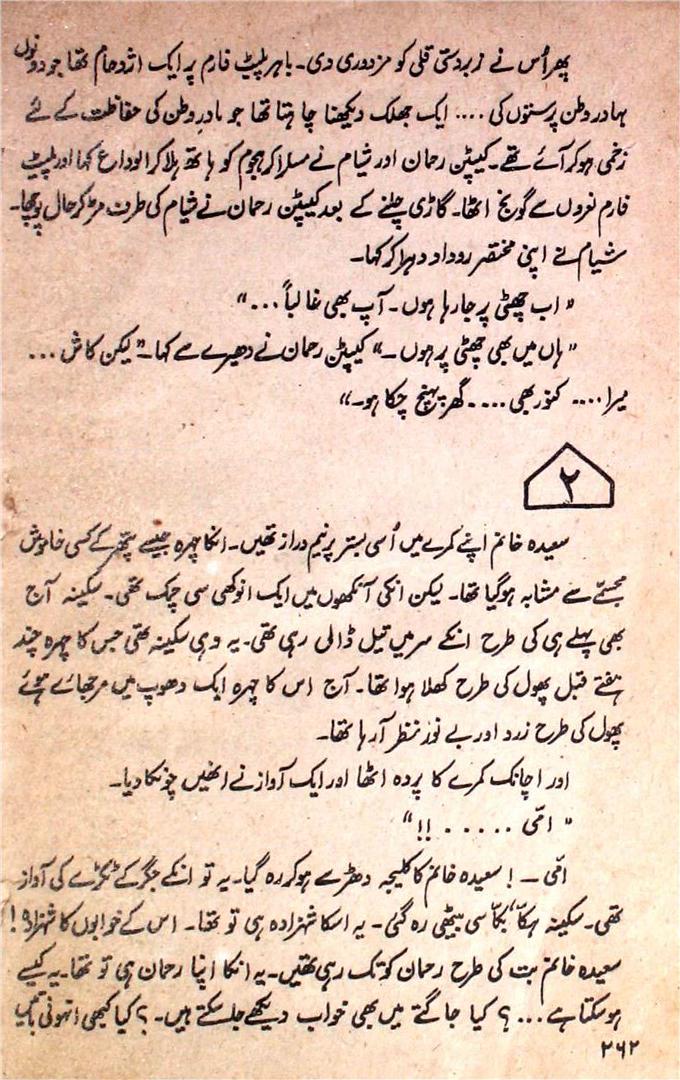 پھر اُس نے زبردستی قلی کو مزدوری دی۔ باہر پلیٹ فارم پر ایک اژدحام تھا جو دونوں
بہادر وطن پرستوں کی .... ایک جھلک دیکھنا چاہتا تھا جو مادرِ وطن کی حفاظت کے لئے
زخمی ہو کر آئے تھے۔ کیپٹن رحمان اور شیام نے مسکرا کر ہجوم کو ہاتھ ہلا کر الوداع کہا اور پلیٹ
فارم نعروں سے گونج اٹھا۔ گاڑی چلنے کے بعد کیپٹن رحمان نے شیام کی طرف مڑ کر حال پوچھا۔
شیام نے اپنی مختصر روداد دہرا کر کہا۔
"اب چھٹی پر جا رہا ہوں۔ آپ بھی غالباً ..."
"ہاں میں بھی چھٹی پر ہوں۔" کیپٹن رحمان نے دھیرے سے کہا۔ "لیکن کاش ...
میرا .... کنور بھی .... گھر پہنچ چکا ہو۔"
۲
سعیدہ خانم اپنے کمرے میں اُسی بستر پر نیم دراز تھیں۔ انکا چہرہ جیسے پتھر کے کسی خاموش
مجسّمے سے مشابہ ہو گیا تھا۔ لیکن انکی آنکھوں میں ایک انوکھی سی چمک تھی۔ سکینہ آج
بھی پہلے ہی کی طرح انکے سر میں تیل ڈالی رہی تھی۔ یہ وہی سکینہ تھی جس کا چہرہ چند
ہفتے قبل پھول کی طرح کھلا ہوا تھا۔ آج اس کا چہرہ ایک دھوپ میں مرجھائے ہوئے
پھول کی طرح زرد اور بے نور نظر آرہا تھا۔
اور اچانک کمرے کا پردہ اٹھا اور ایک آواز نے انھیں چونکا دیا۔
"امّی ..... !!"
امّی ـ! سعیدہ خانم کا کلیجہ دھڑے ہو کر رہ گیا۔ یہ تو انکے جگر کے ٹکڑے کی آواز
تھی۔ سکینہ ہکّا بکّا سی بیٹھی رہ گئی۔ یہ اسکا شہزادہ ہی تو تھا۔ اس کے خوابوں کا شہزادہ!
سعیدہ خانم بت کی طرح رحمان کو تک رہی تھیں۔ یہ انکا اپنا رحمان ہی تو تھا۔ یہ کیسے
ہو سکتا ہے ...؟ کیا جاگتے میں بھی خواب دیکھے جا سکتے ہیں۔؟ کیا کبھی انہونی باتیں
۲۶۲